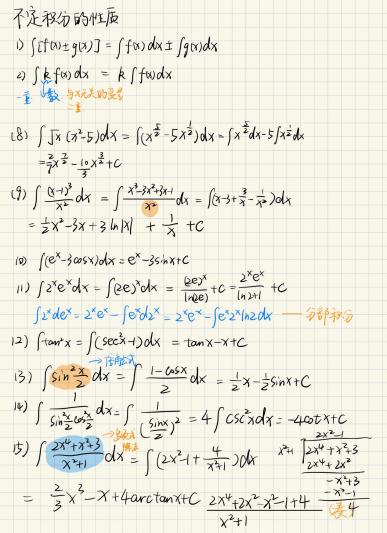 不定积分的性质
1) ∫[f(x)±g(x)] = ∫f(x)dx ± ∫g(x)dx
2) ∫k f(x)dx = k∫f(x)dx
常数 与x无关的变量
(8) ∫√x(x²-5)dx = ∫(x^{5/2}-5x^{1/2})dx = ∫x^{5/2}dx-5∫x^{1/2}dx
= 2/7 x^{7/2} - 10/3 x^{3/2} + C
(9) ∫(x-1)³/x² dx = ∫(x³-3x²+3x-1)/x² dx = ∫(x-3+3/x-1/x²)dx
= 1/2x² - 3x + 3ln|x| + 1/x + C
10) ∫(e^x-3cosx)dx = e^x-3sinx+C
11) ∫2^x e^x dx = ∫(2e)^x dx = (2e)^x/ln(2e) + C = 2^x e^x/(ln2+1) + C
∫2^x de^x = 2^x e^x - ∫e^x d2^x = 2^x e^x - ∫e^x 2^x ln2dx — 分部积分
12) ∫tan²x = ∫(sec²x-1)dx = tanx-x+C
13) ∫sin² x/2 dx = ∫(1-cosx)/2 dx = 1/2x - 1/2sinx+C
14) ∫1/(sin² x/2 cos² x/2) dx = ∫1/(sinx/2)² = 4∫csc²xdx = -4cotx+C
15) ∫(2x⁴+x²+3)/(x²+1) dx = ∫(2x²-1+4/(x²+1))dx
2x²-1
x²+1 2x⁴+x²+3
2x⁴+2x²
-x²+3
-x²-1
4
= 2/3x³-x+4arctanx+C (2x⁴+2x²-x²-1+4)/(x²+1)